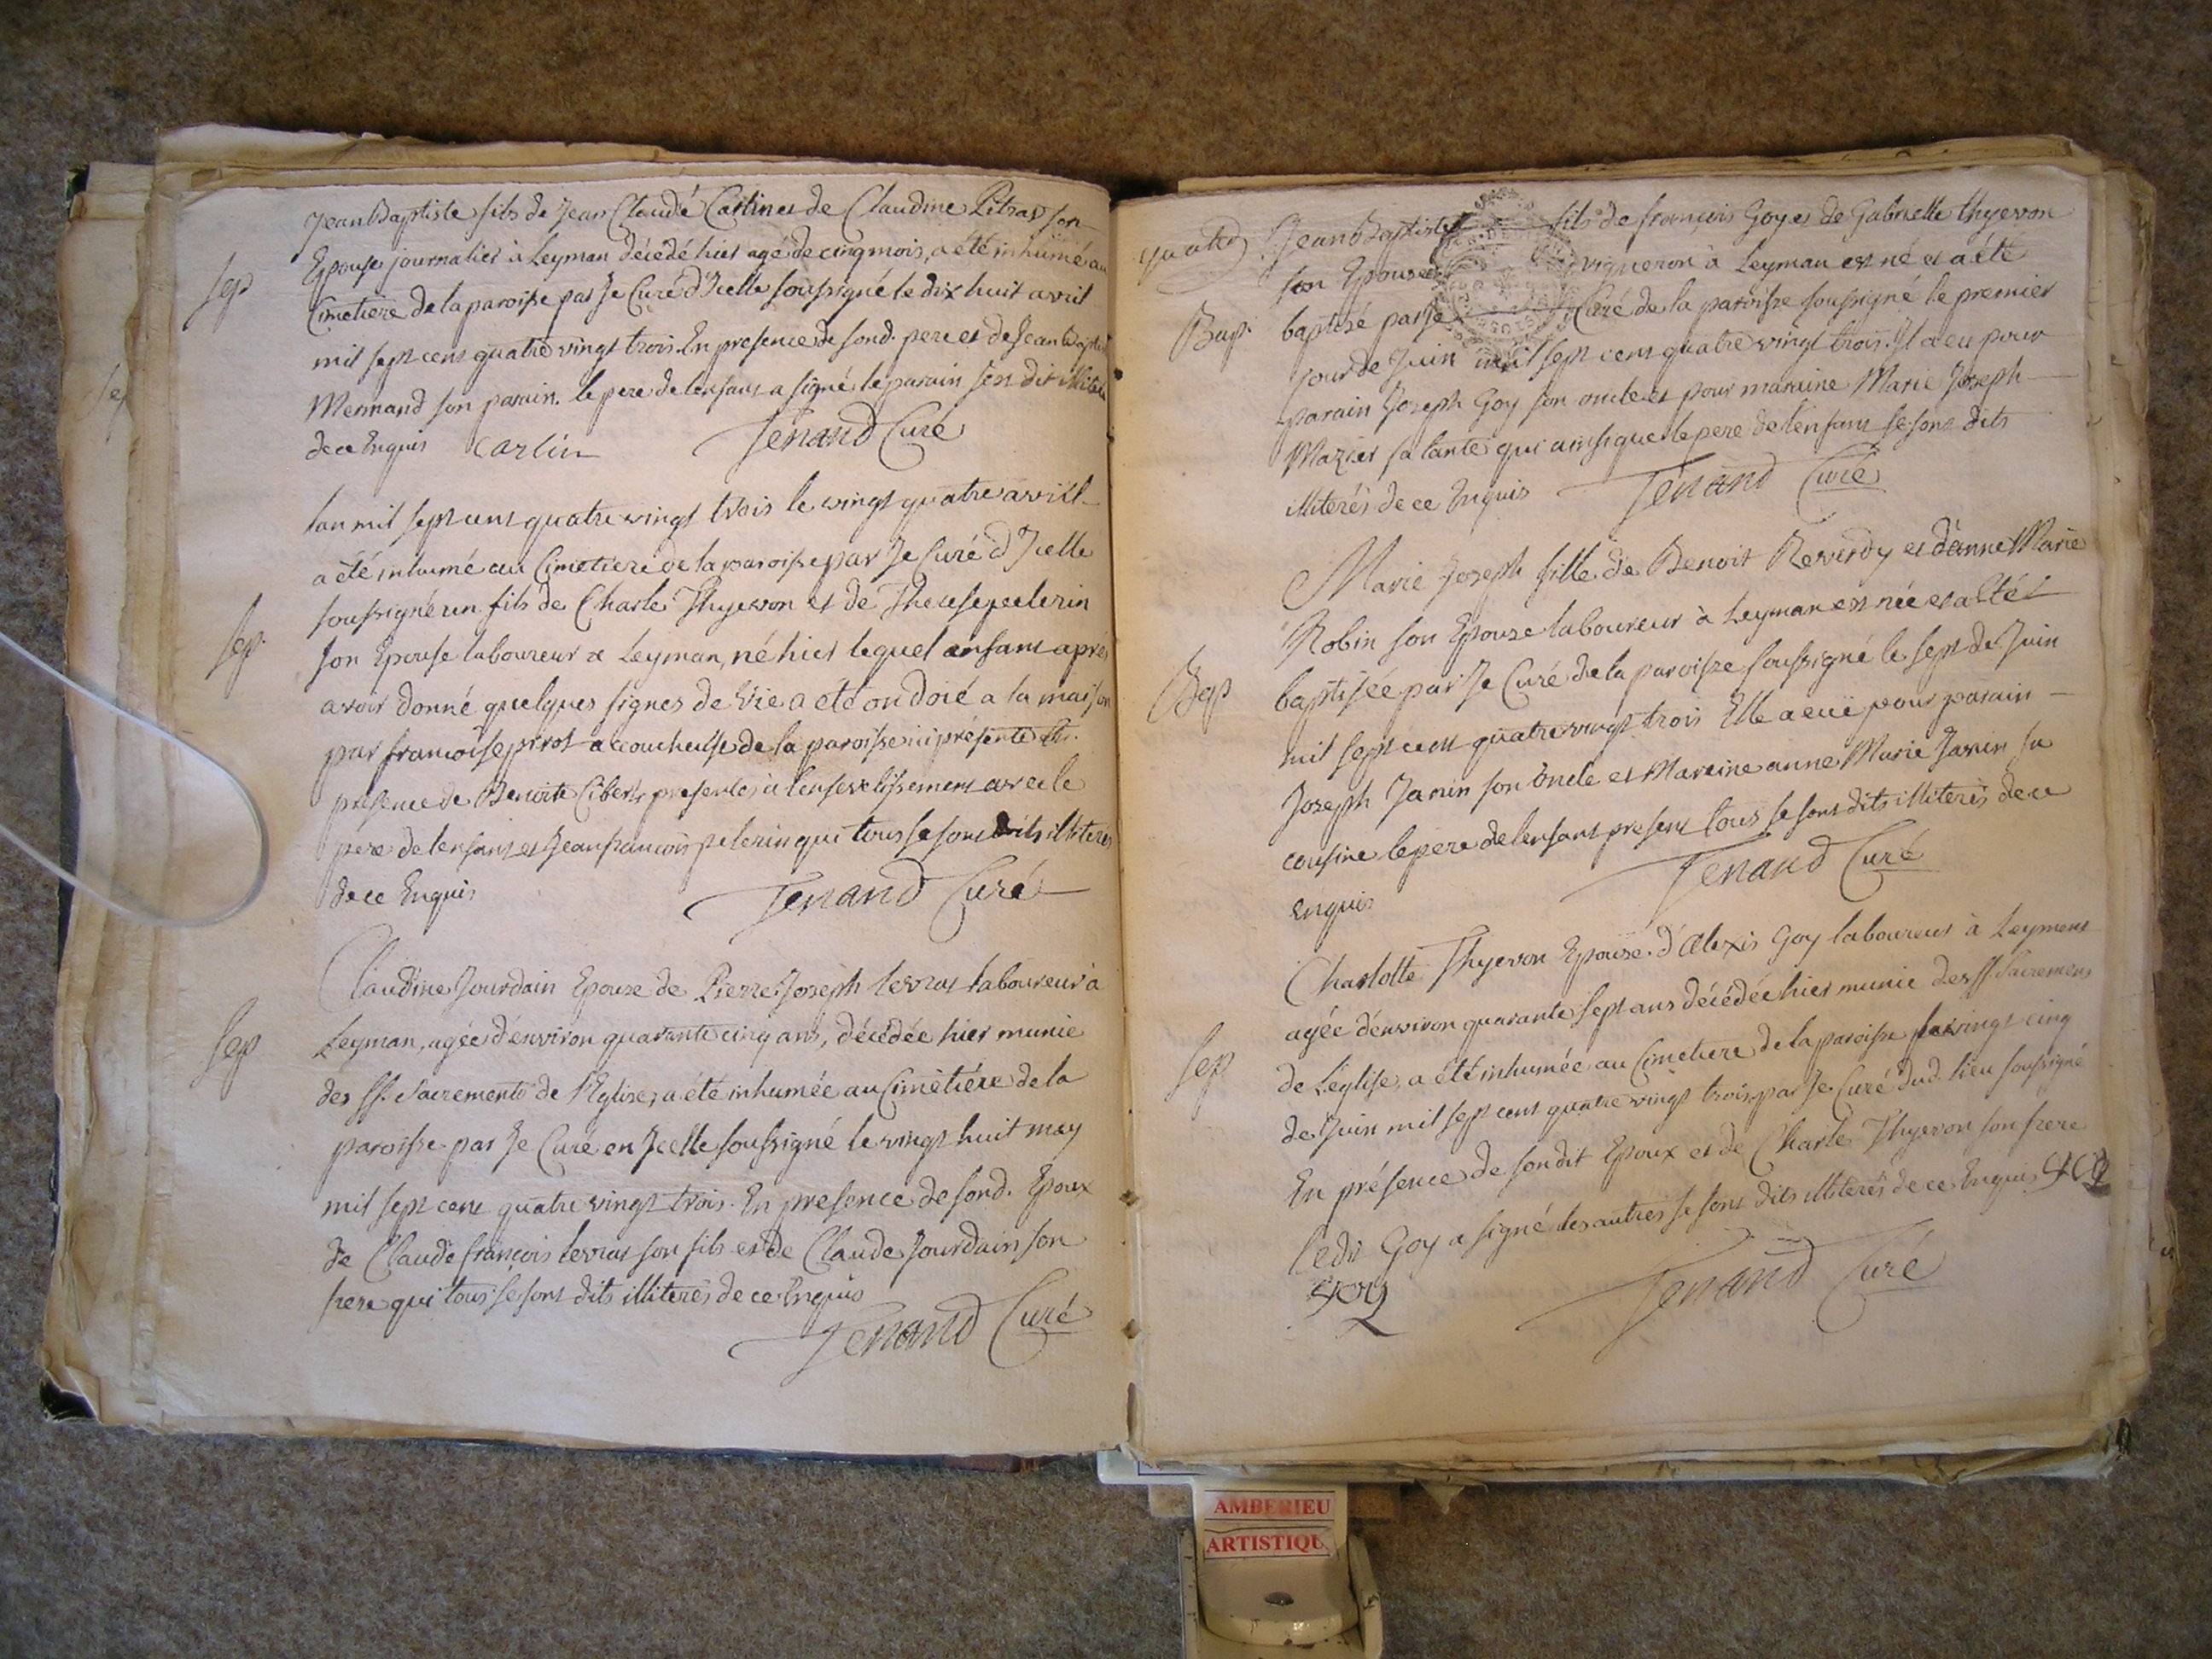 Jean Baptiste fils de Jean Claude Carlin et de Claudine Pitras son
Sep
Epouse journalier à Leyman décédé hier agé de cinq mois, a été inhumé au
Cimetiere de la paroisse par Je Curé d'Icelle soussigné le dix huit avril
mil sept cent quatre vingt trois. En presence de sond. pere et de Jean Baptiste
Mermand son parain. le pere de lenfant a signé le parain sest dit illiteré
de ce Enquis Carlin Tenand Curé
lan mil sept cent quatre vingt trois le vingt quatre avril
a été inhumé au Cimetiere de la paroisse par Je Curé d'Icelle
soussigné un fils de Charle Thyevon et de Therese pelerin
Sep.
son Epouse laboureur a Leyman, né hier lequel enfant aprés
avoir donné quelques signes de Vie a eté ondoié a la maison
par francoise pirot accoucheuse de la paroisse ici présente
présence de Benoite Cibert presentes à lensevelissement avec le
pere de lenfant et Jean francois pelerin qui tous se sont dits illiteres
de ce Enquis Tenand Curé
Claudine Jourdain Epouse de Pierre Joseph levrat laboureur à
Sep
Leyman, agée d'environ quarante cinq ans, décédée hier munie
des SS. Sacrements de l'Eglise, a été inhumée au Cimétiére de la
paroisse par Je Curé en Icelle soussigné le vingt huit may
mil sept cent quatre vingt trois. En presence de sond. Epoux
de Claude françois levrat son fils et de Claude Jourdain son
frere qui tous se sont dits illiterés de ce Enquis
Tenand Curé
quatre
Jean Baptiste fils de françois Goy et de Gabrielle thyevon
son Epouse vigneron à Leyman est né et a été
Bap.
baptisé par Je Curé de la paroisse soussigné le premier
jour de Juin mil sept cent quatre vingt trois. Il a eu pour
parain Joseph Goy son oncle et pour maraine Marie Joseph
Mazier sa tante qui ainsi que le pere de lenfant se sont dits
illiterés de ce Enquis Tenand Curé
Marie Joseph fille de Benoit Reverdy et d'anne Marie
Robin son Epouse laboureur à Leyman est née et a été
Bap
baptisée par Je Curé de la paroisse soussigné le sept de Juin
mil sept cent quatre vingt trois Elle a eüe pour parain
Joseph Janin son oncle et Maraine anne Marie Janin sa
cousine le pere de lenfant present tous se sont dits illiterés de ce
enquis Tenand Curé
Charlotte Thyevon Epouse d'Alexis Goy laboureur à Leyment
agée d'environ quarante sept ans décédée hier munie des SS. Sacremens
Sep
de L'eglise, a été inhumée au Cimetiere de la paroisse le vingt cinq
de Juin mil sept cent quatre vingt trois par Je Curé dud. lieu soussigné
En présence de sondit Epoux et de Charle Thyevon son frere
ledit Goy a signé les autres se sont dits illiterés de ce Enquis
goy Tenand Curé
AMBERIEU
ARTISTIQU